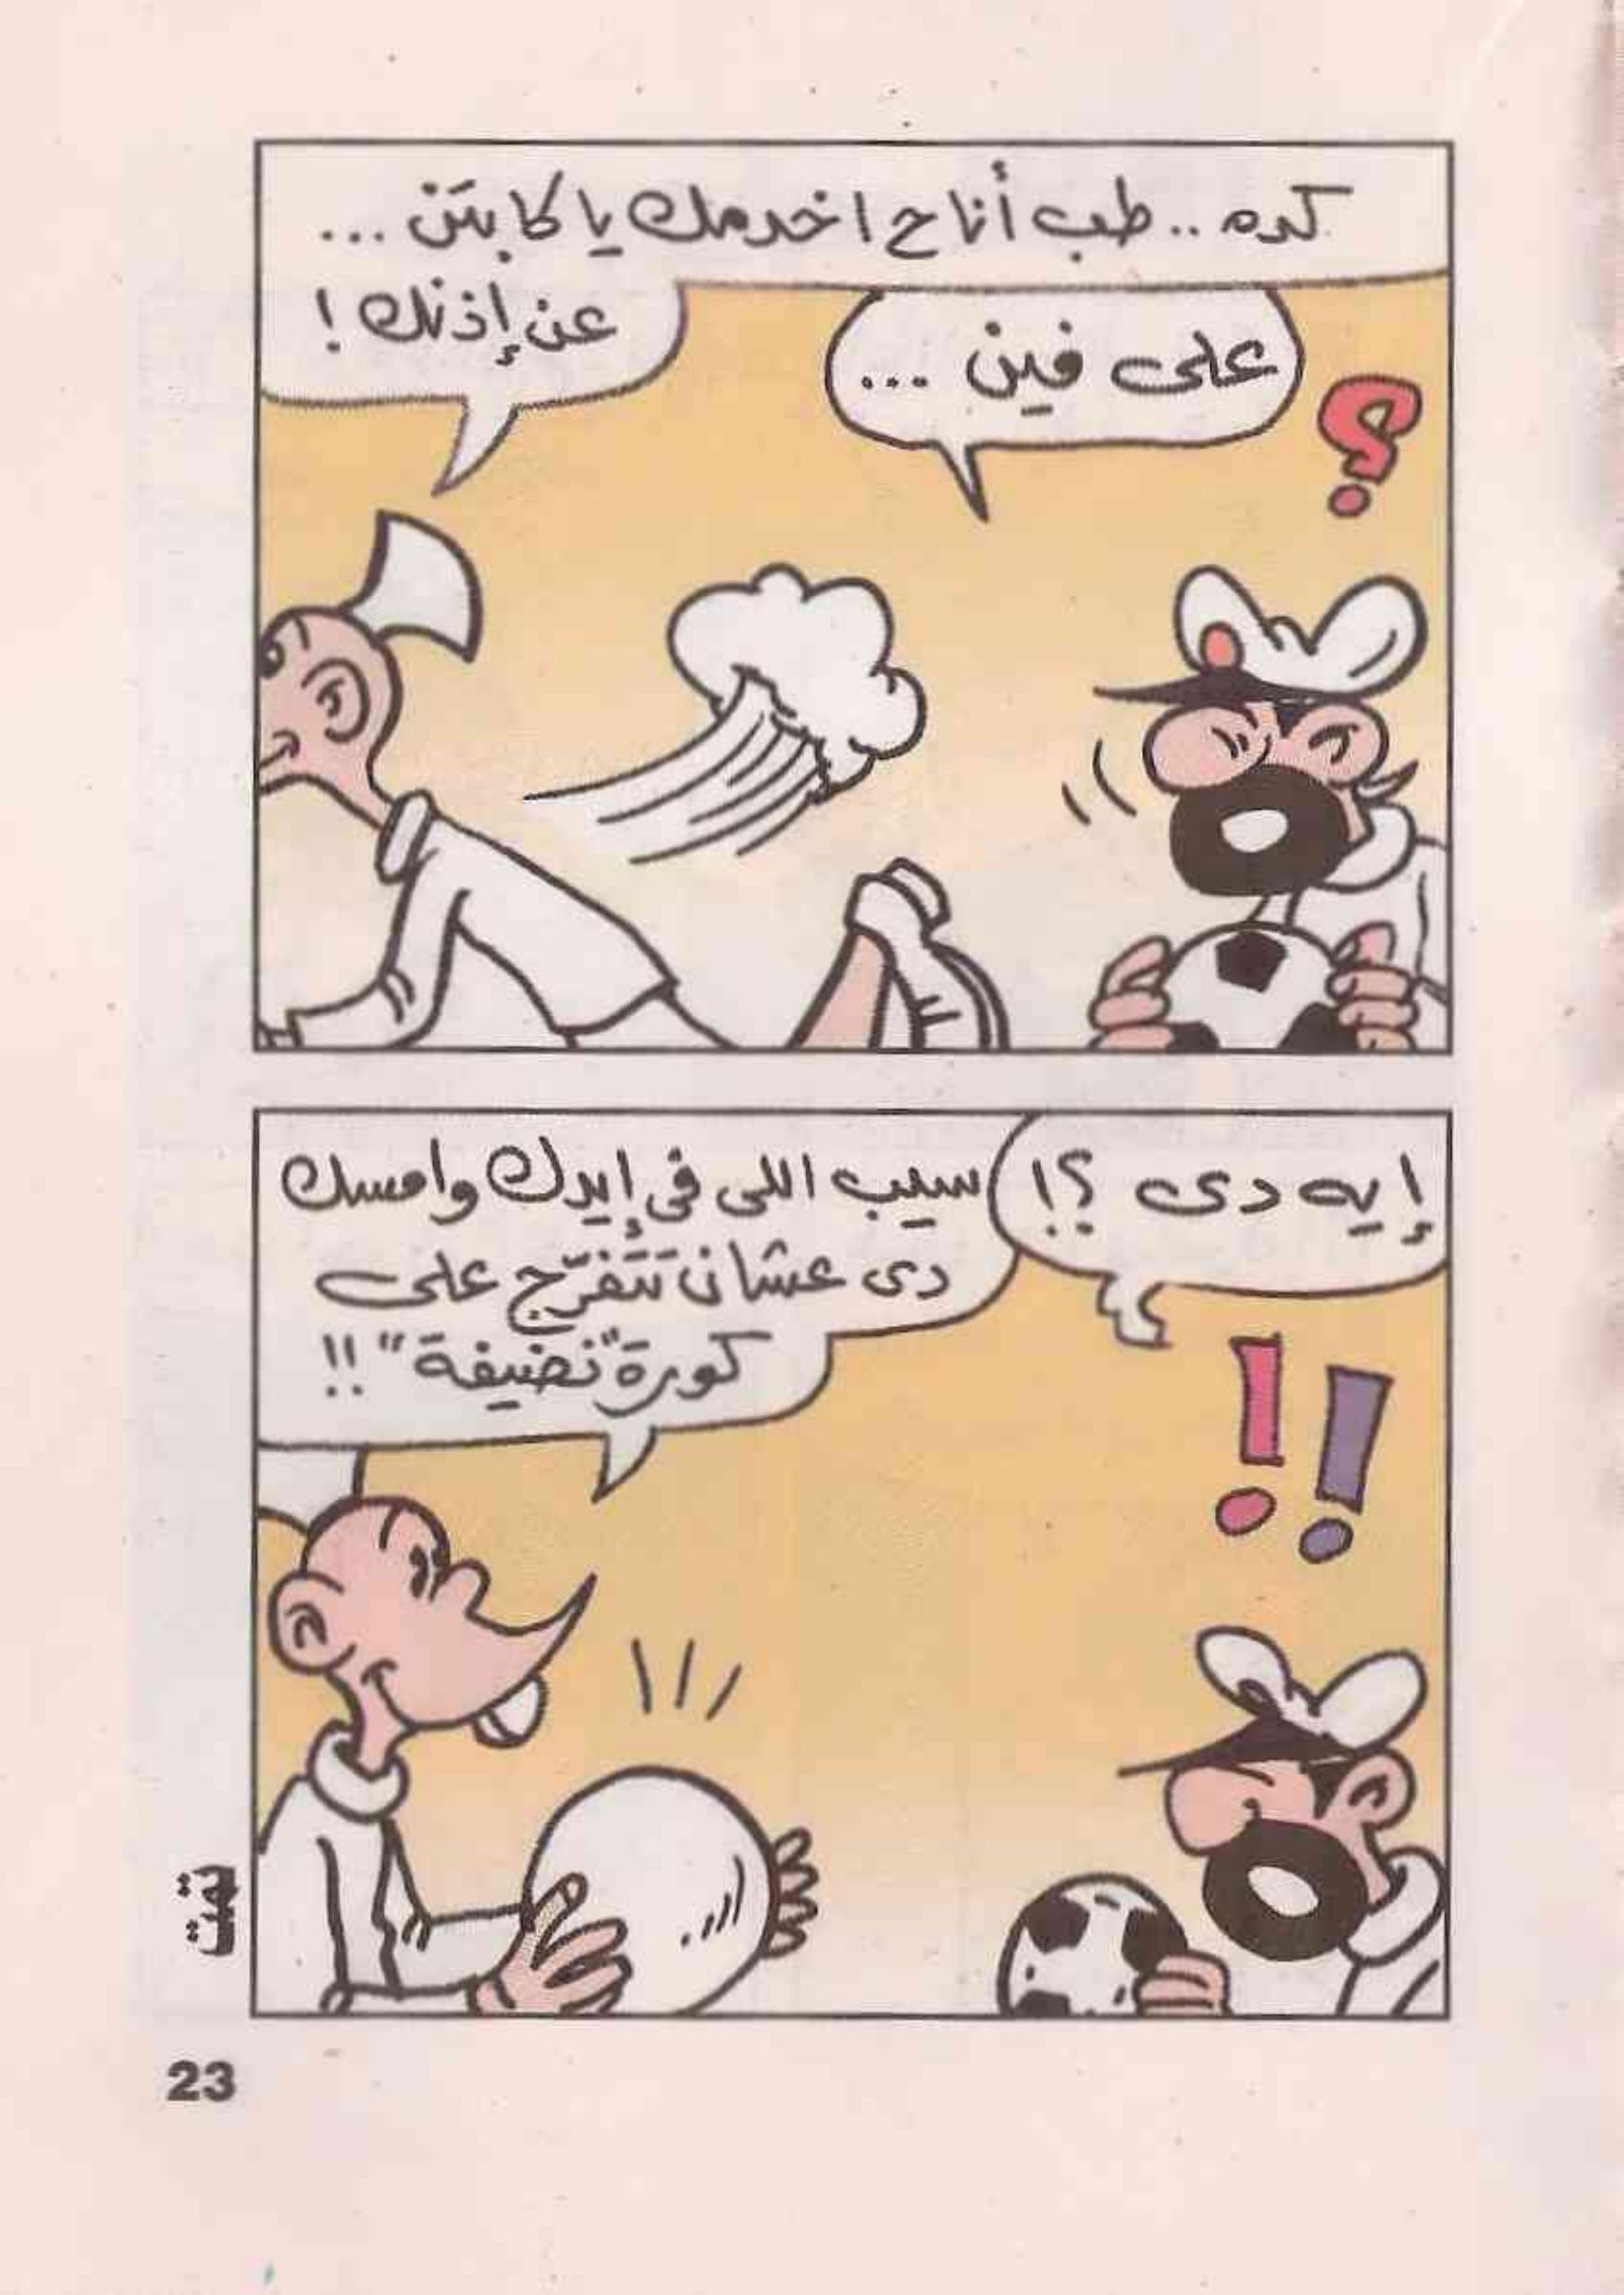 كده .. طب أنا ح اخدمك يا كابتن ...
عن إذنك !
على فين ...
؟
إيه دى ؟!
سيب اللى فى إيدك وامسك
دى عشان تتفرّج على
كورة "نضيفة" !!
!!
تمت
23